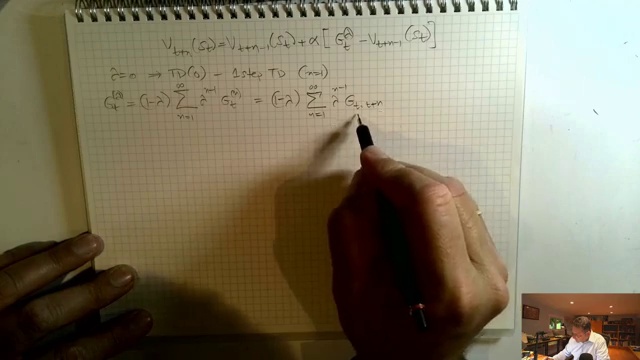 V_{t+n}(S_t) = V_{t+n-1}(S_t) + α[G_t^λ - V_{t+n-1}(S_t)]
λ=0 ⇒ TD(0) - 1 step TD (n=1)
G_t^{(λ)} = (1-λ) ∑_{n=1}^∞ λ^{n-1} G_t^{(n)} = (1-λ) ∑_{n=1}^∞ λ^{n-1} G_{t, t+n}